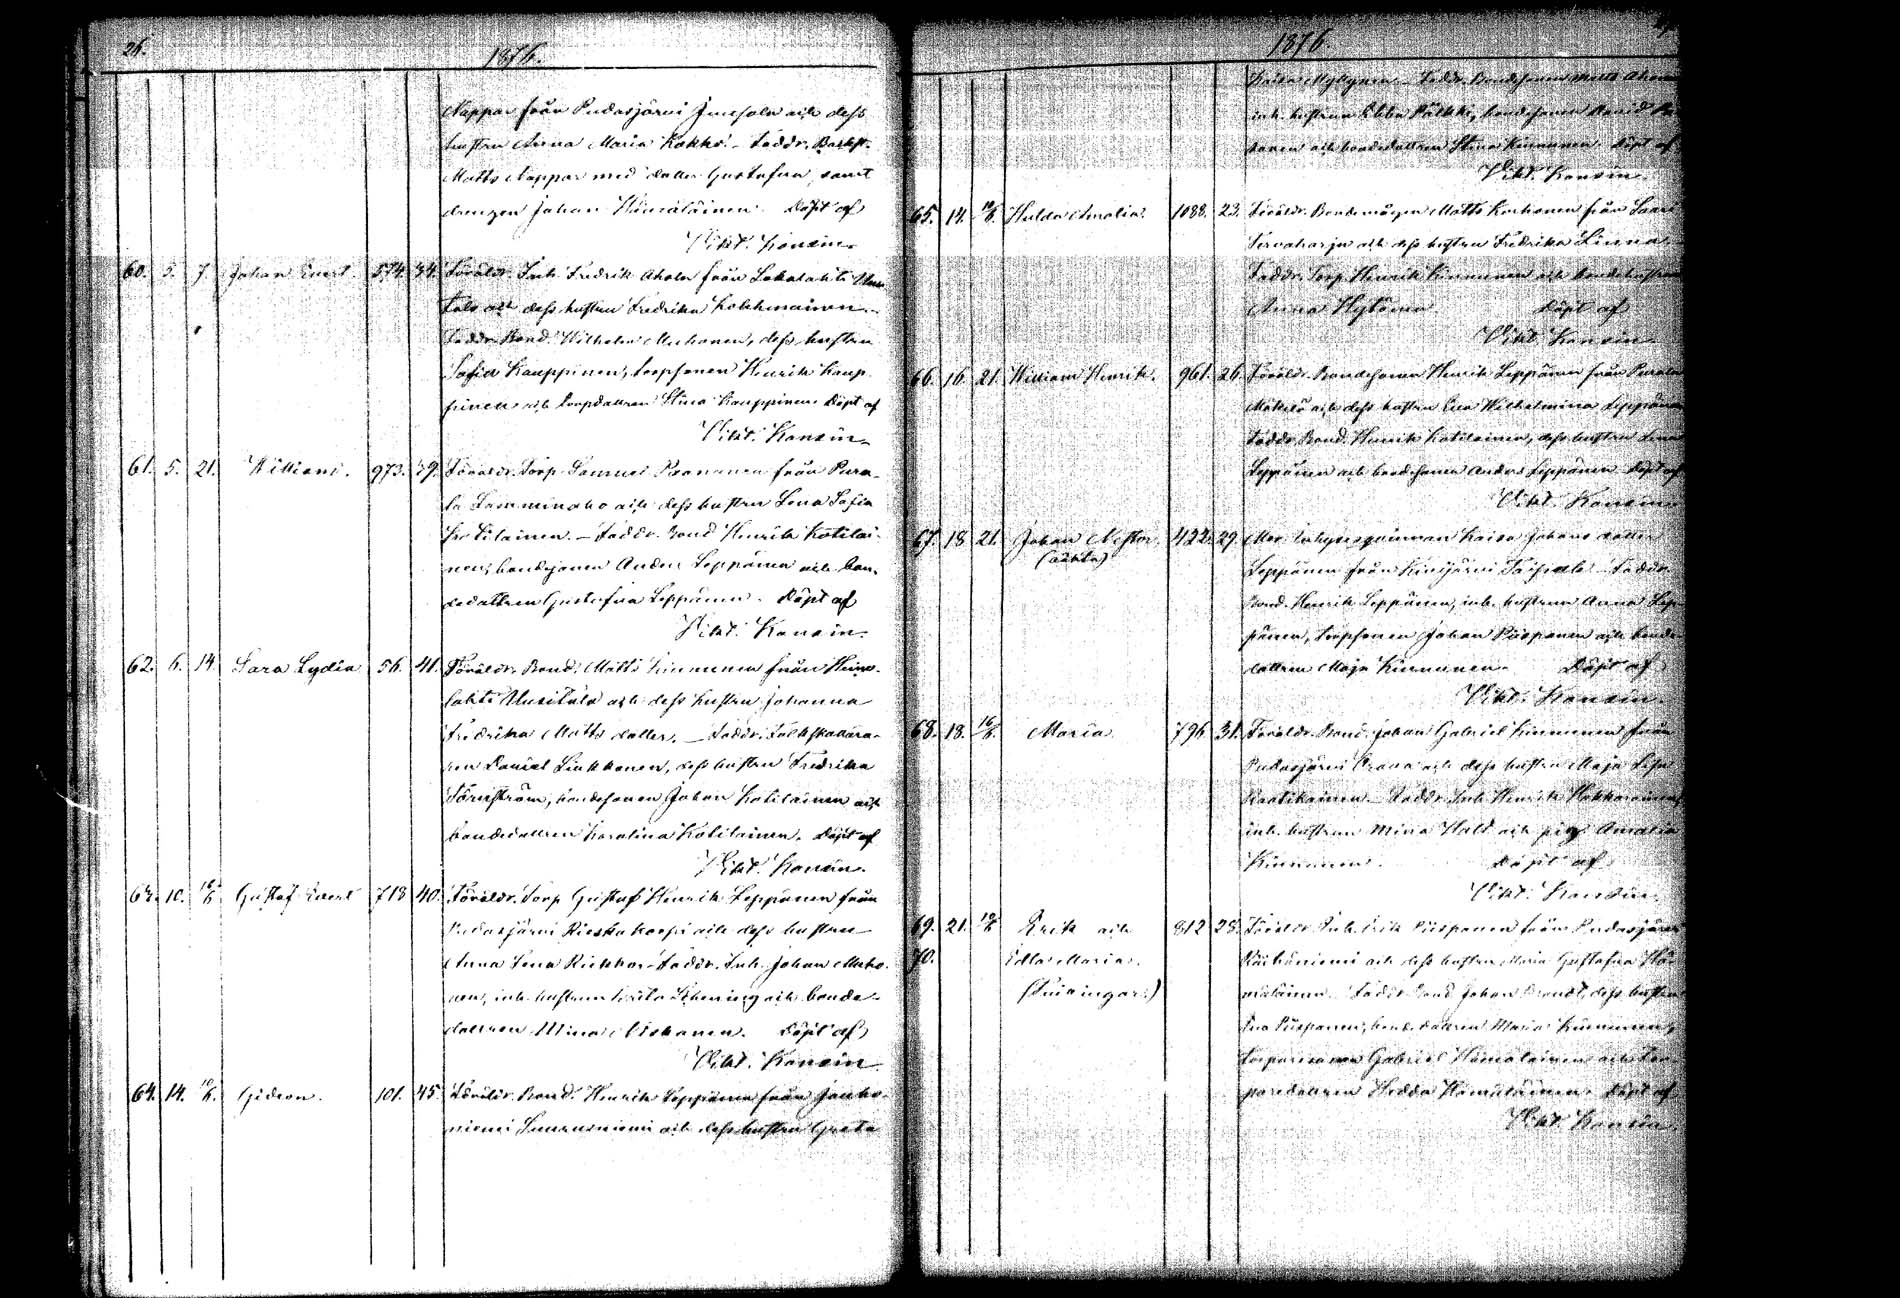 26.
1876.
Nappar från Pudasjärvi Jouhola och dess
hustru Anna Maria Kokko. – Faddr. Backst.
Matts Nappar med dotter Gustafva, samt
drengen Johan Hämäläinen. Döpt af
Vikt. Konsin.
60. 5. 7. Johan Evert. 574. 34. Föräldr. Inh. Fredrik Ahola från Lokalahti Uusi
talo och dess hustru Fredrika Kolehmainen. –
Faddr. Bond. Wilhelm Muhonen, dess hustru
Sofia Kauppinen, torpsonen Henrik Kaup-
pinen och torpdottren Stina Kauppinen. Döpt af
Vikt. Konsin.
61. 5. 21. William. 973. 39. Föräldr. Torp. Samuel Paananen från Pura-
la Lamminaho och dess hustru Lena Sofia
Kotilainen. – Faddr. Bond Henrik Kotilai-
nen, bondsonen Anders Leppänen och bon-
dedottren Gustafva Leppänen. Döpt af
Vikt. Konsin.
62. 6. 14. Sara Lydia 56. 41. Föräldr. Bond. Matts Kinnunen från
lahti Uusitalo och dess hustru Johanna
Fredrika Matts dotter. – Faddr. Folkskollära-
ren Daniel Liukkonen, dess hustru Fredrika
Törnström, bondesonen Johan Kotilainen och
bondedottren Karolina Kotilainen. Döpt af
Vikt. Konsin.
63. 10. Gustaf Evert 718 40. Föräldr. Torp Gustaf Henrik Leppänen från
Pudasjärvi Rieskakoski och dess hustru
Anna Lena Riekko – Faddr. Inh. Johan Muho-
nen, inh. hustrun och bonde-
dottren Mina Niskanen. Döpt af
Vikt. Konsin
64. 14. Gideon. 101. 45. Föräldr. Bond. Henrik Leppänen från Jauho-
niemi Suurusniemi och dess hustru Greta
1876.
Kaisa Myllynen – Faddr. Bondsonen Matts
inh. hustrun Ebba Pölkki, bondesonen David
konen och bondedottren Stina Kinnunen. Döpt af
Vikt. Konsin.
65. 14. Hulda Amalia. 1088. 23. Föräldr. Bondemågen Matts Korhonen från Saari
Tervaharju och dess hustru Fredrika Linna.
Faddr. Torp. Henrik Kinnunen och bondehustrun
Anna Hytönen Döpt af
Vikt Konsin
66. 16. 21. William Henrik. 961. 26. Föräldr. Bondesonen Henrik Leppänen från Purala
Mäkelä och dess hustru Eva Wilhelmina Leppänen
Faddr. Bond. Henrik Kotilainen, dess hustru Lena
Leppänen och bondesonen Anders Leppänen Döpt af
Vikt. Konsin
67. 18 21. Johan Nestor. 422. 29. Mor. Inhyseqvinnan Kaisa Johans dotter
(oäkta)
Leppänen från Kivijärvi Taipale – Faddr.
Bond. Henrik Leppänen, inh. hustrun Anna Lep-
pänen, torpsonen Johan Piispanen och bonde-
dottren Maja Kinnunen. Döpt af
Vikt. Konsin.
68. 18. 16/6. Maria 796 31. Föräldr. Bond. Johan Gabriel Kinnunen från
Pudasjärvi Orava och dess hustru Maja Lisa
Raatikainen – Faddr. Inh. Henrik Hakkarainen,
inh. hustrun Mina Hold och pig. Amalia
Kinnunen. Döpt af
Vikt. Konsin.
69. 21. Erik och 812 28. Föräldr. Inh. Erik Piispanen från Pudasjärvi
70. Edla Maria.
(Tvillingar.)
och dess hustru Maria Gustafva Hä-
mäläinen. Faddr. Bond Johan dess hustru
Eva Piispanen, bondedottren Maria Kinnunen,
torparesonen Gabriel Hämäläinen och tor-
paredottren Hedda Hämäläinen. Döpt af
Vikt. Konsin.